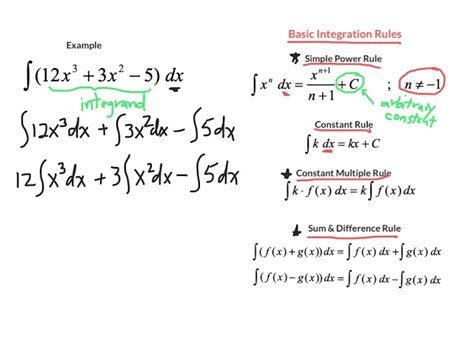 Example
∫(12x³ + 3x² − 5) dx
integrand
∫12x³dx + ∫3x²dx − ∫5dx
12∫x³dx + 3∫x²dx − ∫5dx
Basic Integration Rules
Simple Power Rule
∫xⁿ dx = xⁿ⁺¹/(n+1) + C ; n ≠ −1
arbitrary
constant
Constant Rule
∫k dx = kx + C
Constant Multiple Rule
∫k · f(x) dx = k∫f(x) dx
Sum & Difference Rule
∫(f(x) + g(x)) dx = ∫f(x) dx + ∫g(x) dx
∫(f(x) − g(x)) dx = ∫f(x) dx − ∫g(x) dx